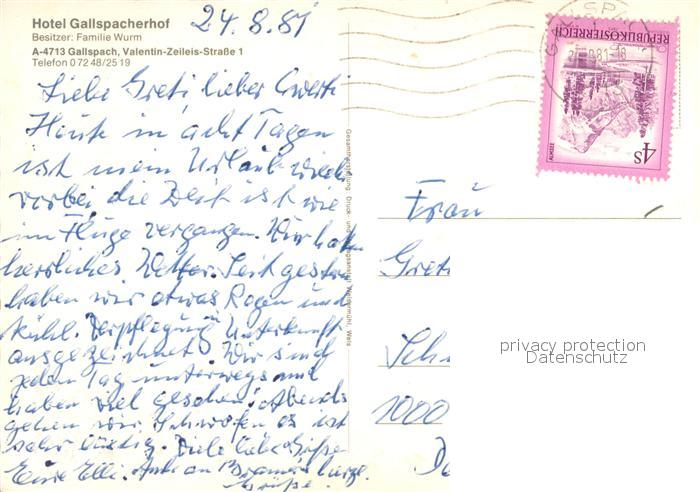 Hotel Gallspacherhof
Besitzer: Familie Wurm
A-4713 Gallspach, Valentin-Zeileis-Straße 1
Telefon 0 72 48/25 19
24.8.81
Liebe Greti, lieber
Heute in acht Tagen
ist mein Urlaub wieder
vorbei, die Zeit ist wie
im Fluge vergangen. Wir haben
herrliches Wetter. Seit gestern
haben wir etwas Regen und
kühl. Verpflegung u Unterkunft
ausgezeichnet. Wir sind
jeden Tag unterwegs und
haben viel gesehen. Abends
gehen wir Schwofen es ist
sehr lustig. Viele liebe Grüße
Eure Elli. Auch an herzl.
Grüße.
Gesamtherstellung: Druck- und Verlagsanstalt Welsermühl, Wels
REPUBLIK ÖSTERREICH
ALMSEE
4S
Frau
Greti
Sch
1000
privacy protection
Datenschutz